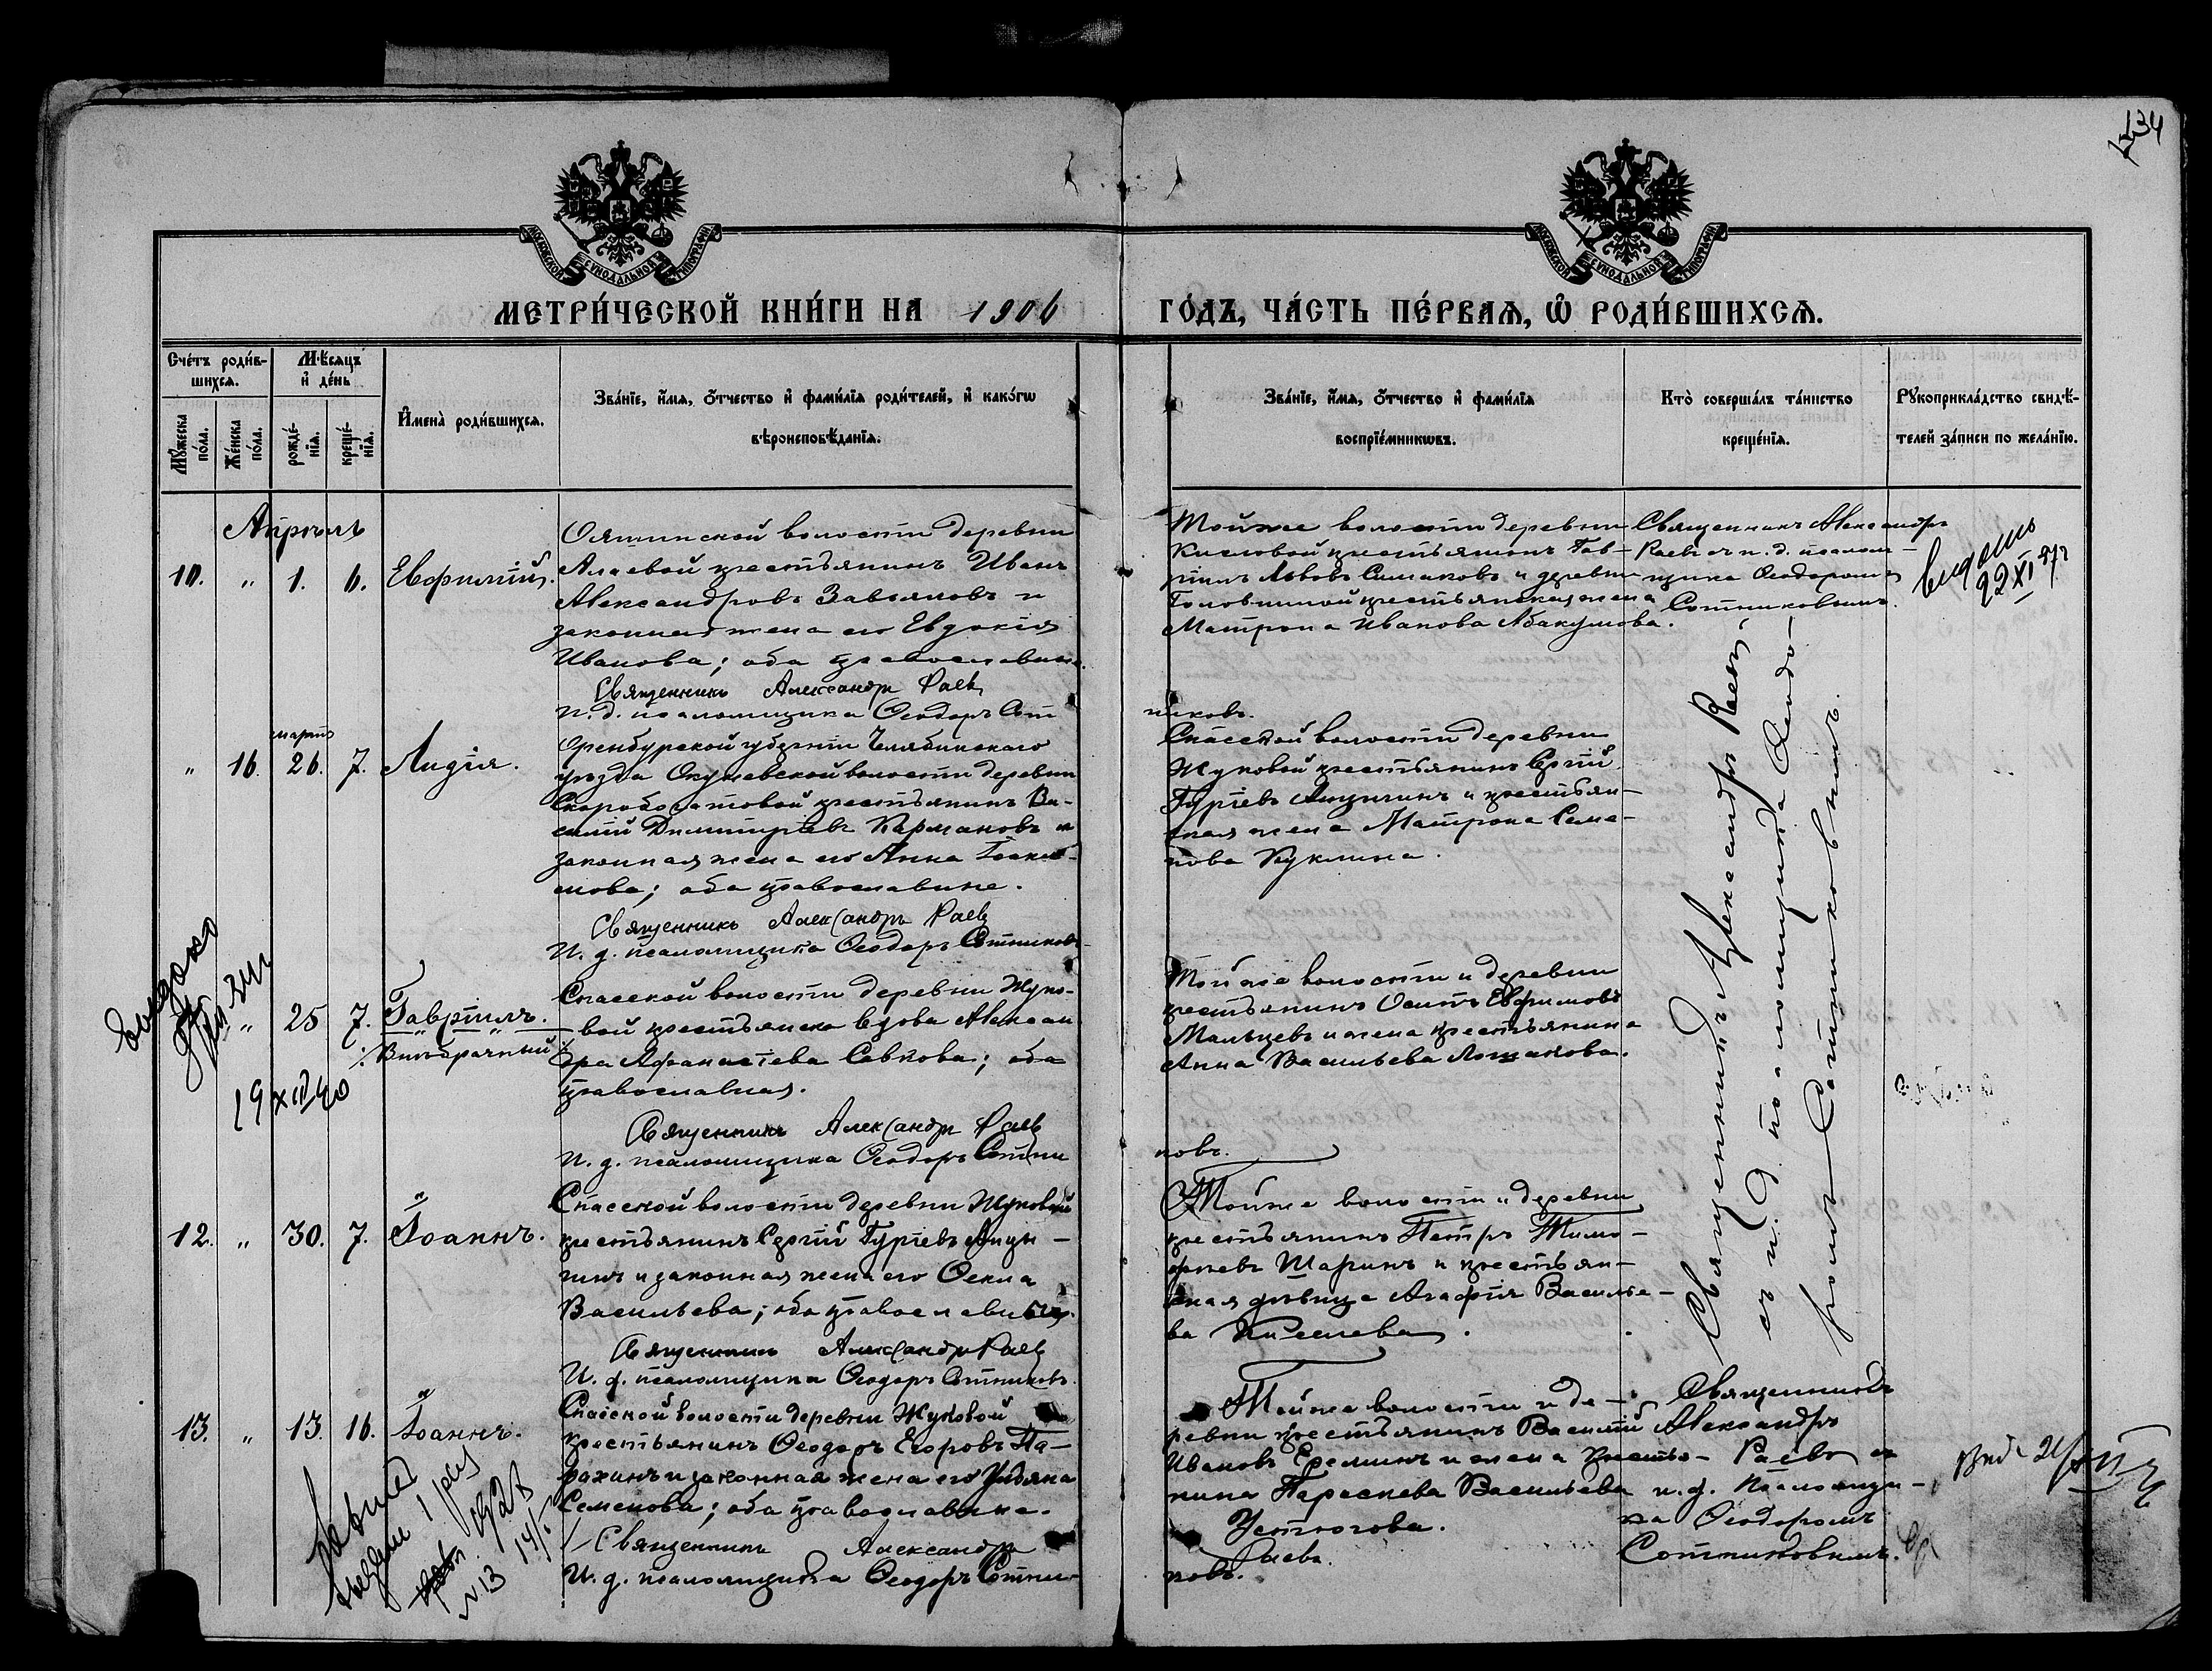 134
МОСКОВСКОЙ СѴНОДАЛЬНОЙ ТИПОГРАФІИ
МОСКОВСКОЙ СѴНОДАЛЬНОЙ ТИПОГРАФІИ
МЕТРИ́ЧЕСКОЙ КНИ́ГИ НА 1906 ГО́ДЪ, ЧА́СТЬ ПЕ́РВАѦ, Ѡ҆ РОДИ́ВШИХСѦ.
Сче́тъ роди́в-
шихсѧ.
Мꙋ́жеска по́ла.
Же́нска по́ла.
Мѣ́сѧцъ
и҆ де́нь
рожде́-
нїѧ.
креще́-
нїѧ.
И҆мена̀ роди́вшихсѧ.
Зва́нїе, и҆́мѧ, ѻ҆́тчество и҆ фами́лїѧ роди́телей, и҆ како́гѡ
вѣроисповѣ́данїѧ.
Зва́нїе, и҆́мѧ, ѻ҆́тчество и҆ фами́лїѧ
воспрїе́мникѡвъ.
Кто̀ соверша́лъ та́инство
креще́нїѧ.
Рꙋкоприкла́дство свидѣ́-
телей за́писи по жела́нїю.
Апрѣль
10. " 1. 6. Евфимій.
Ояшинской волости деревни
Алаевой крестьянинъ Иванъ
Александровъ Завьяловъ и
законная жена его Евдокія
Иванова; оба православные.
Священникъ Александръ Раевъ
И. д. псаломщика Ѳеодоръ Сот
Тойже волости деревни
Кисловой крестьянинъ Гав-
ріилъ Львовъ Симаковъ и деревни
крестьянская жена
Матрона Иванова Абакумова.
Священникъ Александръ
Раевъ съ и. д. псалом-
щика Ѳеодоромъ
Сотниковымъ.
выдано
22 XI
никовъ.
" 16. марта 26. 7. Лидія.
Оренбургской губерніи Челябинскаго
уѣзда Окуневской волости деревни
Скоробогатовой крестьянинъ Ва-
силій Димитріевъ Кармановъ и
законная жена его Анна Іоаки-
мова; оба православные.
Священникъ Александръ Раевъ
И. д. псаломщика Ѳеодоръ Сотниковъ
Спасской волости деревни
Жуковой крестьянинъ Сергій
Гуріевъ и крестьян-
ская жена Матрона Семе-
нова Куклина.
Священникъ Александръ Раевъ,
съ и. д. псаломщика Ѳеодо-
ромъ Сотниковымъ.
" 25 7. Гавріилъ.
/:Внѣбрачный:/
Спасской волости деревни Жуко-
вой крестьянска вдова Алексан
дра Афанасіева Савкова; оба
православная.
Священникъ Александръ Раевъ
И. д. псаломщика Ѳеодоръ Сотни
Тойже волости и деревни
крестьянинъ Осипъ Евфимовъ
Мальцевъ и жена крестьянина
Анна Васильева Лошакова.
новъ.
19 XII 40
12. " 30. 7. Іоаннъ.
Спасской волости деревни Жуковой
крестьянинъ Сергій Гуріевъ
и законная жена его Ѳекла
Васильева; оба православные.
Священникъ Александръ Раевъ
И. д. псаломщика Ѳеодоръ Сотниковъ.
Тойже волости и деревни
крестьянинъ Петръ Тимо-
феевъ Шаринъ и крестьян-
ская дѣвица Агафія Василье-
ва Киселева.
13. " 13. 16. Іоаннъ.
Спасской волости деревни Жуковой
крестьянинъ Ѳеодоръ Егоровъ Па-
рахинъ и законная жена его Ульяна
Семенова; оба православные.
Священникъ Александръ
И. д. псаломщика Ѳеодоръ Сотни-
Тойже волости и де-
ревни крестьянинъ Василій
Ивановъ Ереминъ и жена кресть-
янина Параскева Васильева
Устюгова.
Раевъ.
ковъ.
Священникъ
Александръ
Раевъ съ
и. д. псаломщи-
ка Ѳеодоромъ
Сотниковымъ.
N 13